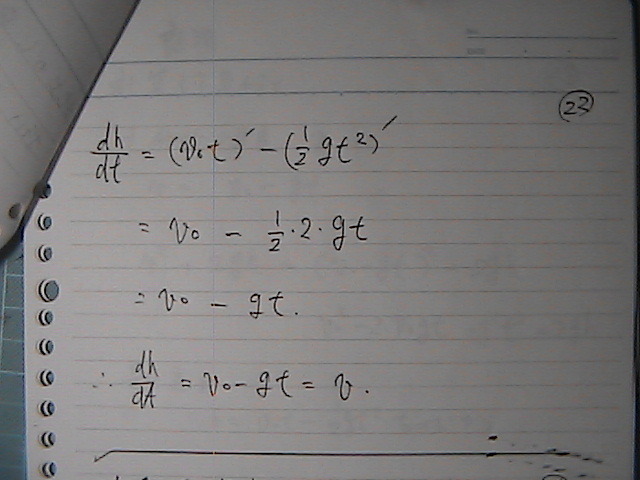 ㉓
dh/dt = (v₀t)′ − (½ gt²)′
= v₀ − ½·2·gt
= v₀ − gt.
∴ dh/dt = v₀ − gt = v.